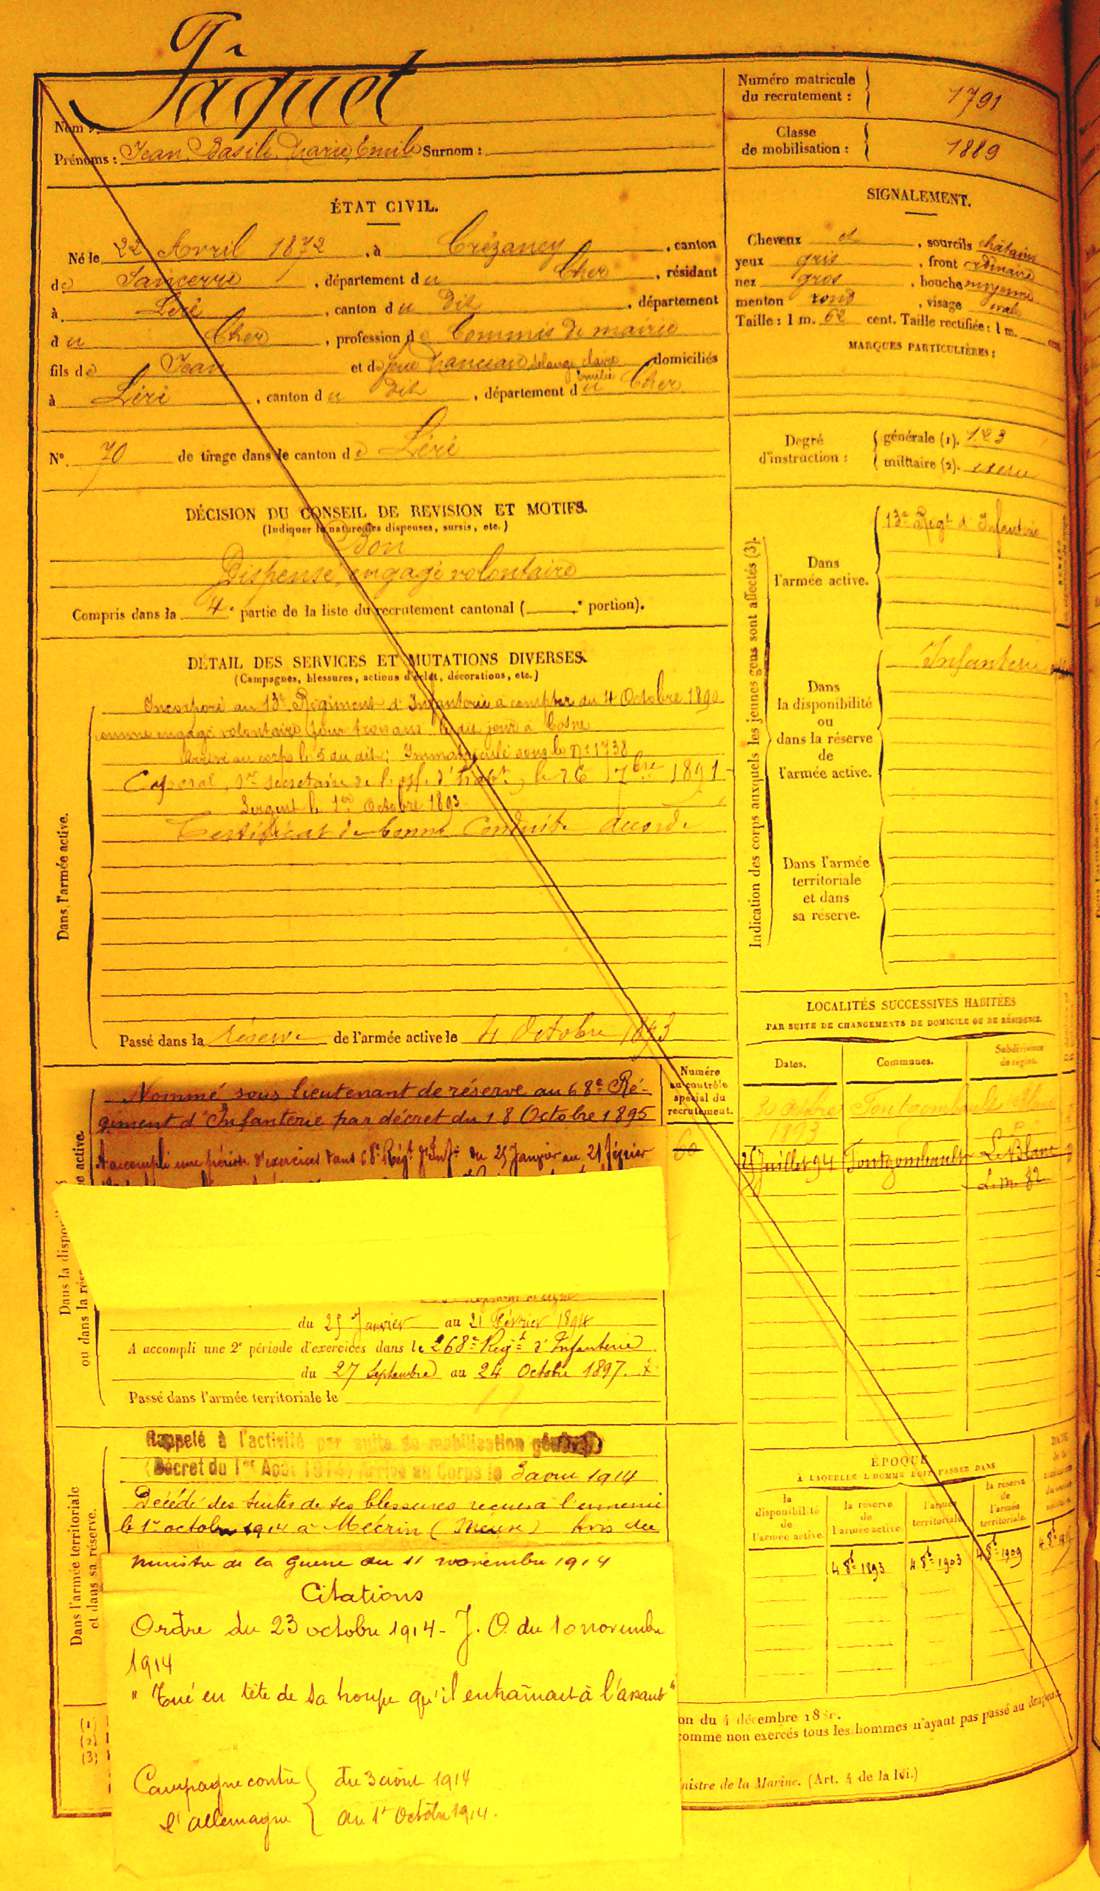 Pâquet
Nom :
Prénoms : Jean Basile Marie Emile Surnom :
Numéro matricule du recrutement : 1791
Classe de mobilisation : 1889
ÉTAT CIVIL.
Né le 22 Avril 1872, à Crézancy, canton
de Sancerre, département du Cher, résidant
à Léré, canton du Dit, département
du Cher, profession de Commis de mairie
fils de Jean et de domiciliés
à Léré, canton du Dit, département du Cher
N° 70 de tirage dans le canton de Léré
SIGNALEMENT.
Cheveux et, sourcils châtains
yeux gris, front ordinaire
nez gros, bouche moyenne
menton rond, visage ovale
Taille : 1 m. 62 cent. Taille rectifiée : 1 m. cent.
MARQUES PARTICULIÈRES :
Degré d'instruction : générale (1). 123
militaire (2). exercé
DÉCISION DU CONSEIL DE REVISION ET MOTIFS.
(Indiquer la nature des dispenses, sursis, etc.)
Bon
Dispensé, engagé volontaire
Compris dans la 4e partie de la liste du recrutement cantonal ( e portion).
DÉTAIL DES SERVICES ET MUTATIONS DIVERSES.
(Campagnes, blessures, actions d'éclat, décorations, etc.)
Dans l'armée active.
Incorporé au 13e Régiment d'Infanterie à compter du 4 Octobre 1890
comme engagé volontaire pour trois ans le dit jour à Cosne
Arrivé au corps le 5 du dit ; Immatriculé sous le N° 1738
Caporal, le 26 7bre 1891
Sergent le 1er Octobre 1893
Certificat de bonne Conduite Accordé
Passé dans la réserve de l'armée active le 4 Octobre 1893
Indication des corps auxquels les jeunes gens sont affectés (3).
Dans l'armée active.
13e Régt d'Infanterie
Dans la disponibilité ou dans la réserve de l'armée active.
Infanterie
Dans l'armée territoriale et dans sa réserve.
LOCALITÉS SUCCESSIVES HABITÉES
PAR SUITE DE CHANGEMENTS DE DOMICILE OU DE RÉSIDENCE.
Dates. Communes. Subdivisions de région.
1893
25 Juillet 94 Fontgombault Le Blanc
Numéro au contrôle spécial du recrutement.
60
Nommé sous lieutenant de réserve au 68e Ré-
giment d'Infanterie par décret du 18 Octobre 1895
A accompli une période d'exercices dans 68e Régt d'Inf. du 25 Janvier au 21 février
du 25 Janvier au 21 Février 1898
A accompli une 2e période d'exercices dans le 268e Régt d'Infanterie
du 27 Septembre au 24 Octobre 1897.
Passé dans l'armée territoriale le
Dans l'armée territoriale et dans sa réserve.
Rappelé à l'activité par suite de mobilisation générale
(Décret du 1er Août 1914) Arrivé au Corps le 3 aout 1914
Décédé des suites de ses blessures reçues à l'ennemi
le 1er octobre 1914 à Mécrin (Meuse)
ministre de la guerre du 11 novembre 1914
Citations
Ordre du 23 octobre 1914 - J. O. du 10 novembre
1914
" Tué en tête de sa troupe qu'il entraînait à l'assaut "
Campagne contre l'allemagne { du 3 aout 1914
au 1er Octobre 1914.
ÉPOQUE
À LAQUELLE L'HOMME DOIT PASSER DANS
la disponibilité de l'armée active.
la réserve de l'armée active.
l'armée territoriale.
la réserve de l'armée territoriale.
4 8bre 1893 4 8bre 1903 4 8bre 1909
(1)
(2)
(3)
on du 4 décembre 18
comme non exercés tous les hommes n'ayant pas passé au drapeau.
nistre de la Marine. (Art. 4 de la loi.)